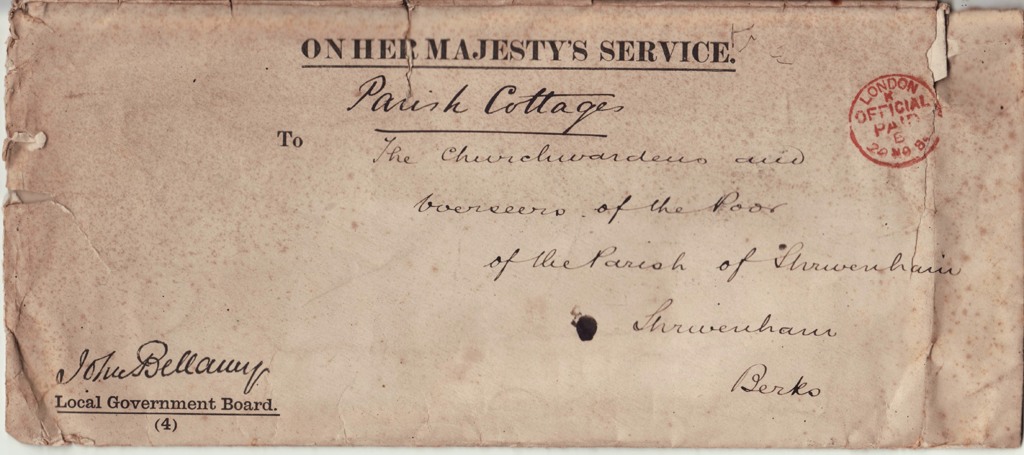 ON HER MAJESTY'S SERVICE.
Parish Cottages
To
The Churchwardens and
Overseers of the Poor
of the Parish of Shrivenham
Shrivenham
Berks
LONDON
K
OFFICIAL
PAID
E
John Bellamy
Local Government Board.
(4)